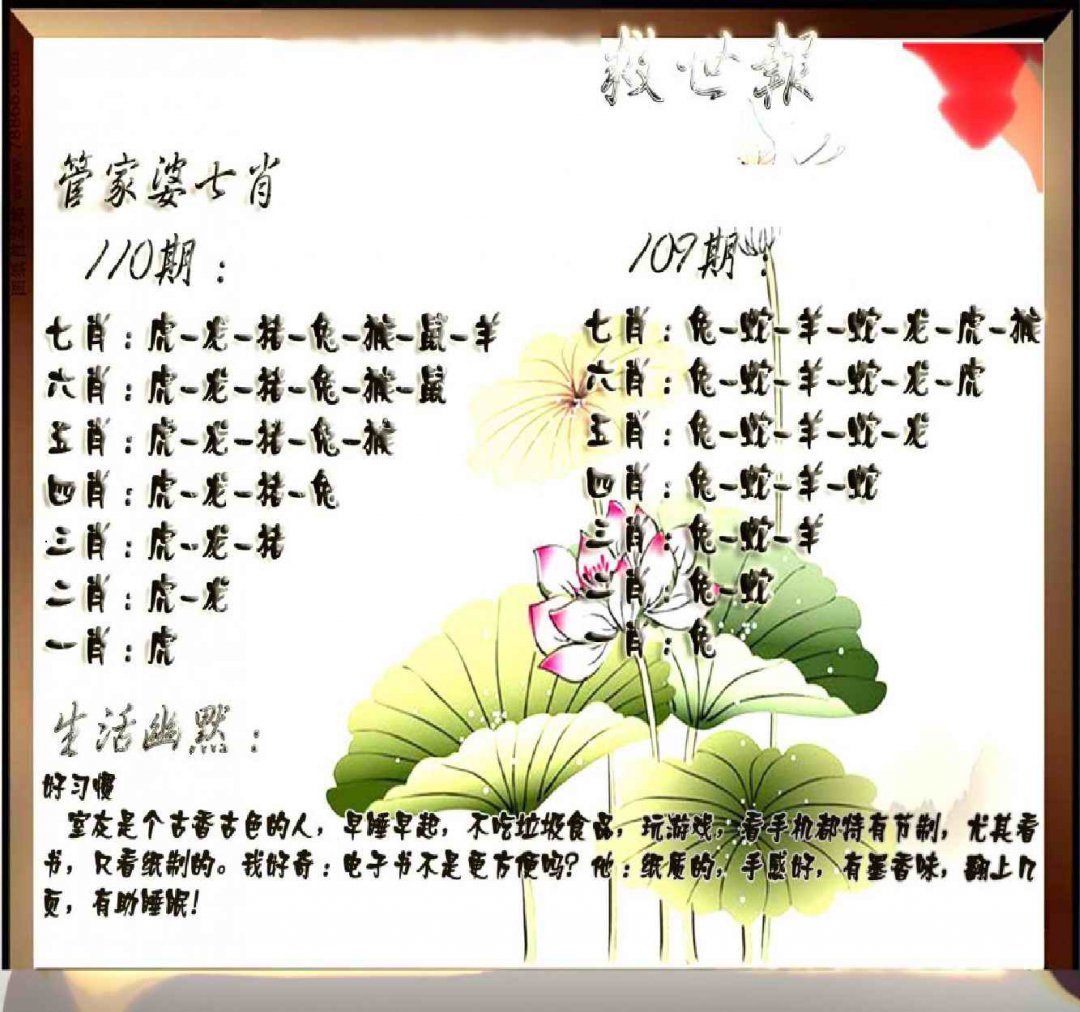 救世報
管家婆七肖
110期：
七肖：虎-龙-猪-兔-猴-鼠-羊
六肖：虎-龙-猪-兔-猴-鼠
五肖：虎-龙-猪-兔-猴
四肖：虎-龙-猪-兔
三肖：虎-龙-猪
二肖：虎-龙
一肖：虎
109期：
七肖：兔-蛇-羊-蛇-龙-虎-猴
六肖：兔-蛇-羊-蛇-龙-虎
五肖：兔-蛇-羊-蛇-龙
四肖：兔-蛇-羊-蛇
三肖：兔-蛇-羊
二肖：兔-蛇
一肖：兔
生活幽默：
好习惯
室友是个古香古色的人，早睡早起，不吃垃圾食品，玩游戏，看手机都特有节制，尤其看
书，只看纸制的。我好奇：电子书不是更方便吗？他：纸质的，手感好，有墨香味，翻上几
页，有助睡眠！